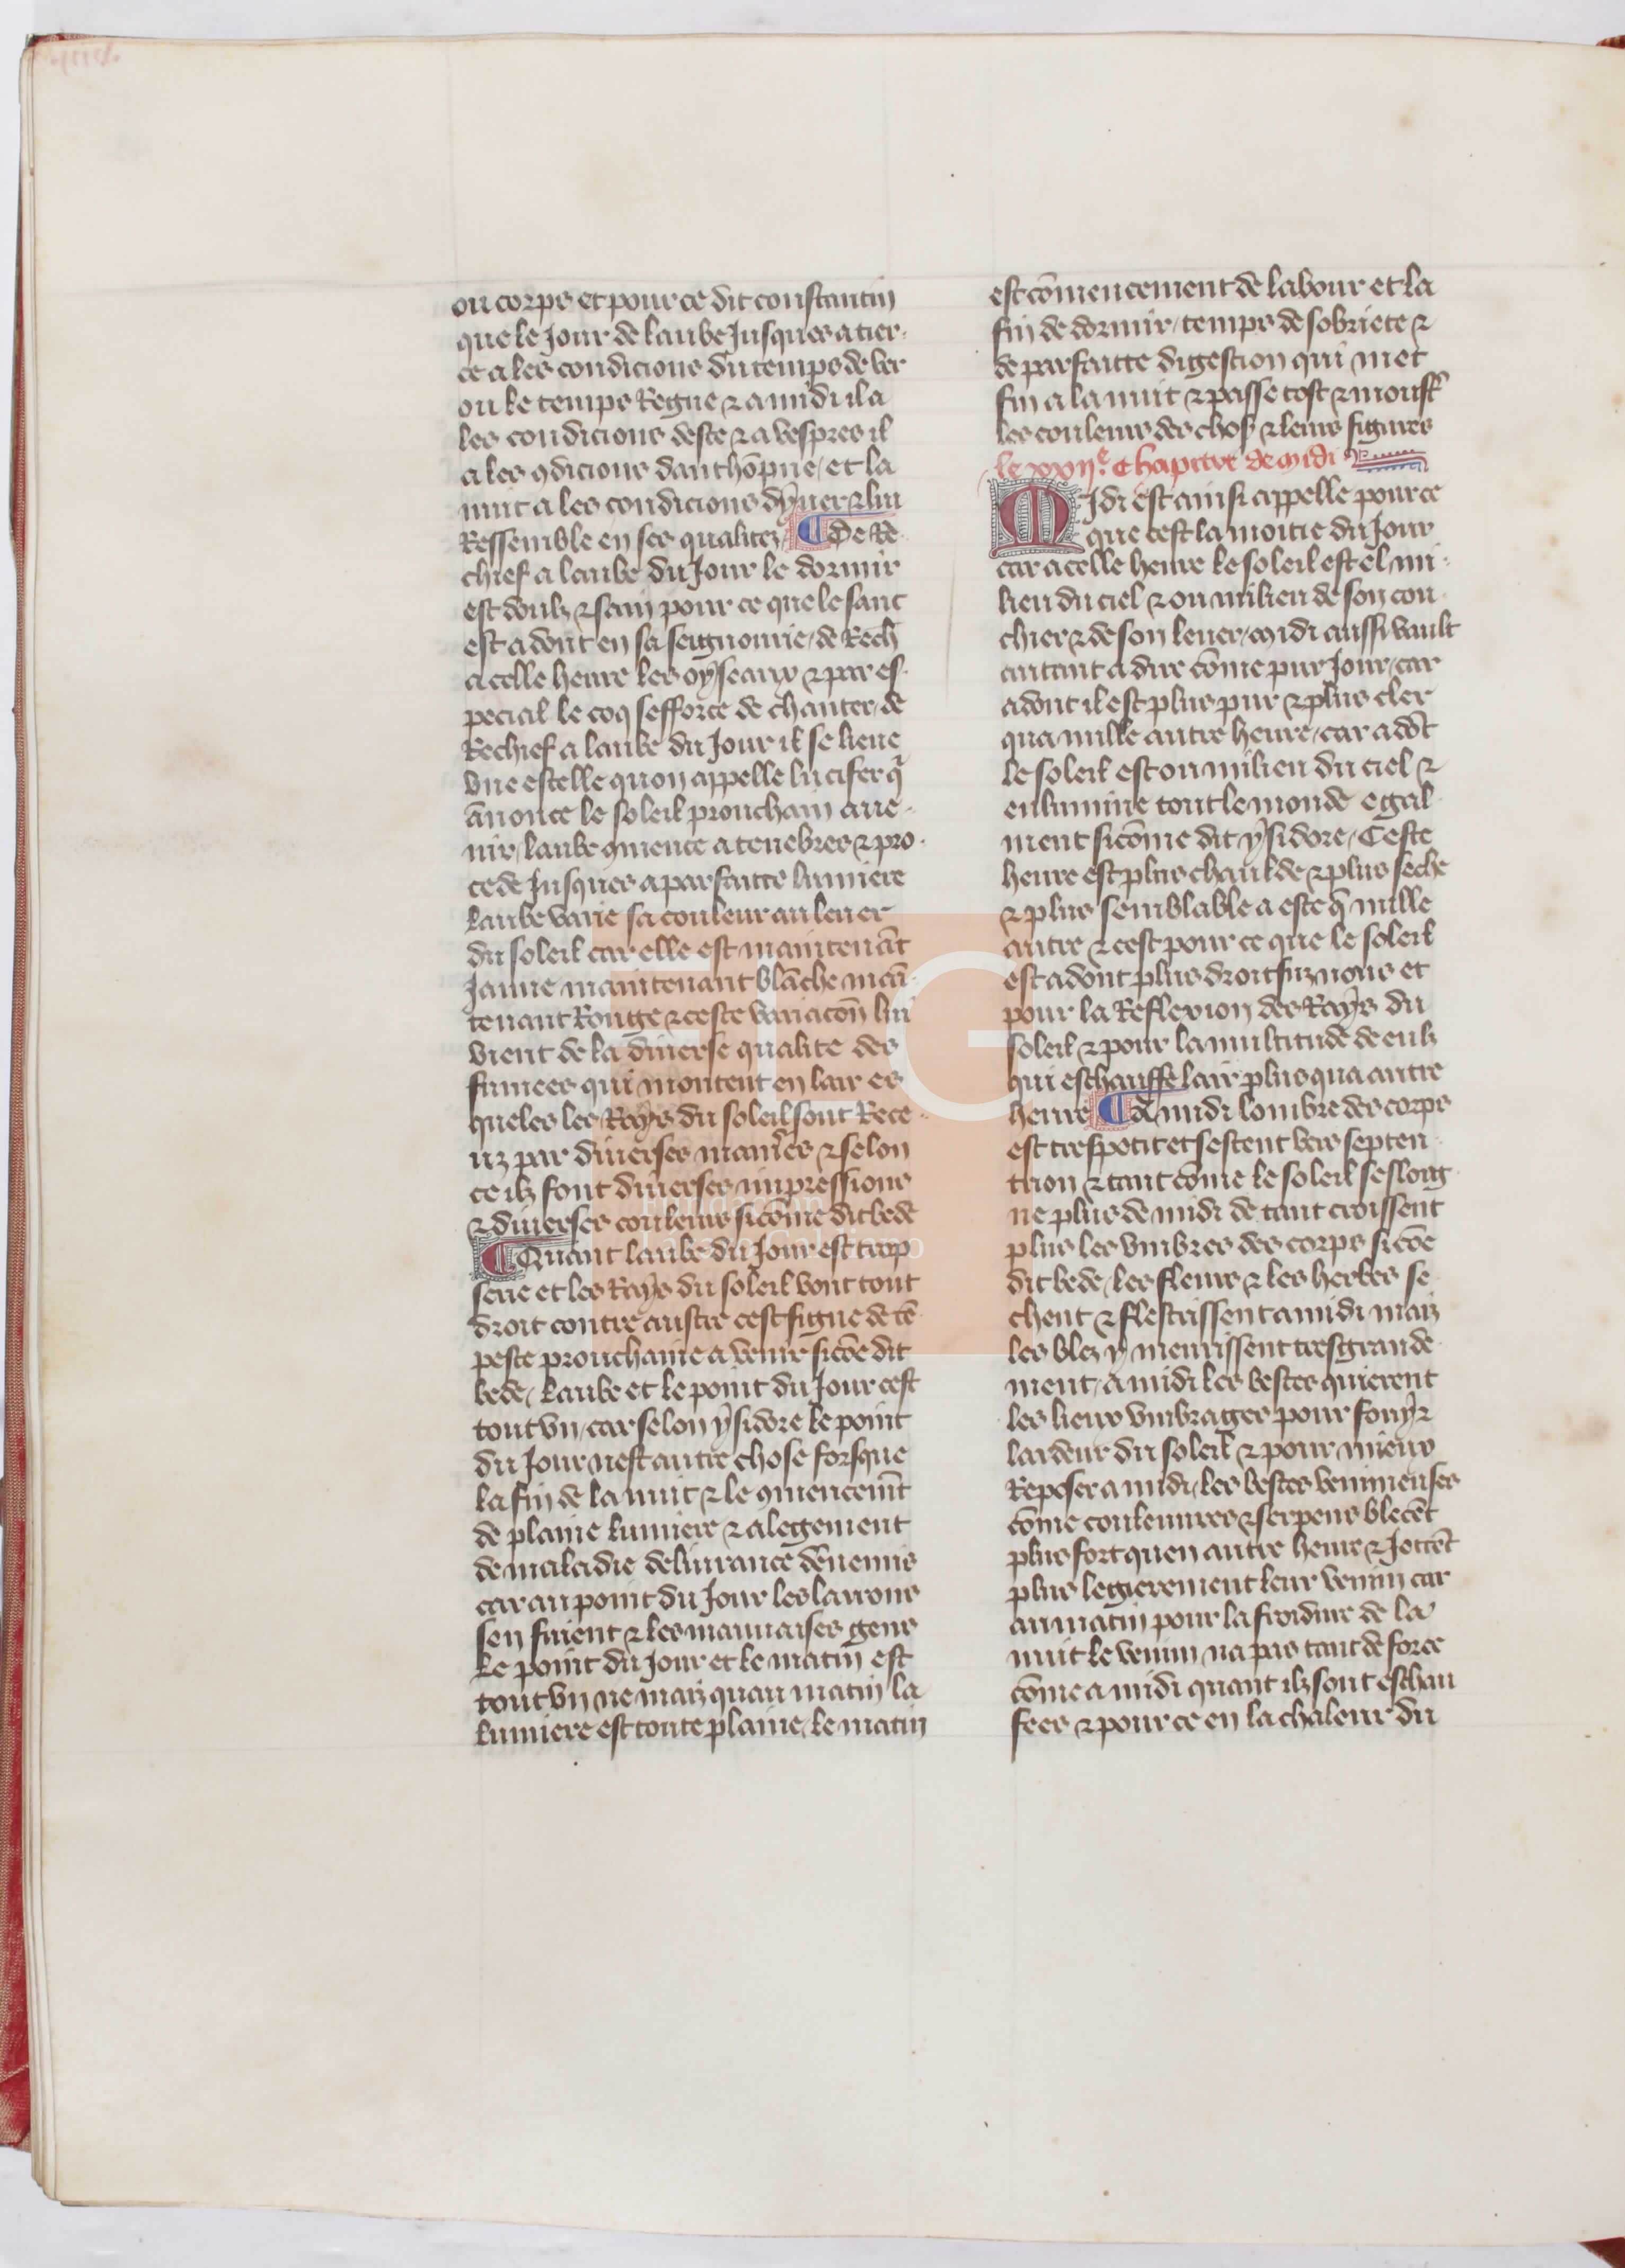 ou corps et pour ce dit constantin
que le Jour de laube Jusques a tier-
ce a les condicions du temps de ver
ou le temps Regne ⁊ a midi il a
les condicions deste ⁊ a vespres il
a les ꝯdicions danthōpne / et la
nuit a les condicions dyuer ⁊ lui
Ressemble en ses qualitez / De Re-
chief a laube du Jour le dormir
est doulz ⁊ sain pour ce que le sanc
est adont en sa seignourie / de Rech̄
a celle heure les oyseaux ⁊ par es-
pecial le coq sefforce de chanter / de
Rechief a laube du Jour il se lieue
vne estelle quon appelle lucifer q̄
ānonce le soleil prouchain aue-
nir / laube ꝯmence a tenebres ⁊ pro-
cede Jusques a parfaitte lumiere
laube varie sa couleur au leuer
du soleil car elle est maintenāt
Jaune maintenant blāche mai͂-
tenant Rouge ⁊ ceste variacōn lui
vient de la diuerse qualite des
fumees qui montent en lair es
queles les Rays du soleil sont Rece-
uz par diuerses manieres ⁊ selon
ce ilz font diuerses impressions
⁊ diuerses couleurs sicōme dit bede
Quant laube du Jour est trop
serie et les Rays du soleil vont tout
droit contre austre cest signe de tē-
peste prouchaine a venir sicōe dit
bede / laube et le point du Jour cest
tout vn / car selon ysidore le point
du Jour nest autre chose forsque
la fin de la nuit ⁊ le ꝯmencem̄t
de plaine lumiere ⁊ alegement
de maladie deliurance dēnemis
car au point du Jour les larrons
sen fuient ⁊ les mauuaises gens
le point du Jour et le matin est
tout vn ne maiz quau matin la
lumiere est toute plaine / le matin
est cōmencement de labour et la
fin de dormir / temps de sobriete ⁊
de parfaitte digestion qui met
fin a la nuit ⁊ passe tost ⁊ monst̄
les couleurs des chos̄ ⁊ leurs figures
le xxii.e Chapitre de midi
MJdi est ainsi appelle pour ce
que cest la moitie du Jour
car a celle heure le soleil est el mi-
lieu du ciel ⁊ ou milieu de son cou-
chier ⁊ de son leuer / midi aussi vault
autant a dire cōme pur Jour / car
adont il est plus pur ⁊ plus cler
qua nulle autre heure / car adōt
le soleil est ou milieu du ciel ⁊
enlumine tout le monde egal-
ment sicōme dit ysidore / Ceste
heure est plus chaulde ⁊ plus seche
⁊ plus semblable a este q̄ nulle
autre ⁊ cest pour ce que le soleil
est adont plus droit suz nous et
pour la Reflexion des Rays du
soleil ⁊ pour la multitude de eulz
qui eschauffe lair plus qua autre
heure A midi lombre des corps
est tres petit et sestent vers septen-
trion ⁊ tant cōme le soleil seslong-
ne plus de midi de tant croissent
plus les vmbres des corps sicōe
dit bede / les fleurs ⁊ les herbes se-
chent ⁊ flestrissent a midi maiz
les blez y meurissent tresgrande-
ment / a midi les bestes quierent
les lieux vmbrages pour fouyr
lardeur du soleil ⁊ pour mieux
Reposer a midi / les bestes venimeuses
cōme couleuures ⁊ serpens blecēt
plus fort quen autre heure ⁊ Jettēt
plus legierement leur venim car
au matin pour la froidure de la
nuit le venim na pas tant de force
cōme a midi quant ilz sont eschau
fees ⁊ pour ce en la chaleur du